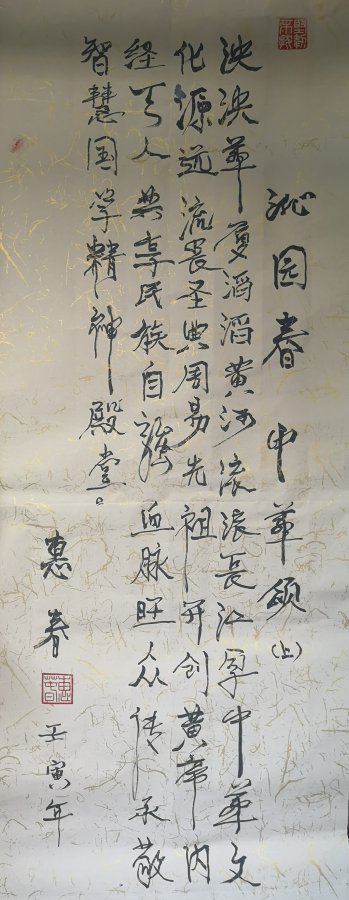 沁园春 中华颂（上）
泱泱华夏滔滔黄河滚滚长江孕中华文
化源远流长圣典周易先祖开创黄帝内
经天人共享民族自强血脉旺众传承敬
智慧国学精神殿堂。
惠春
壬寅年